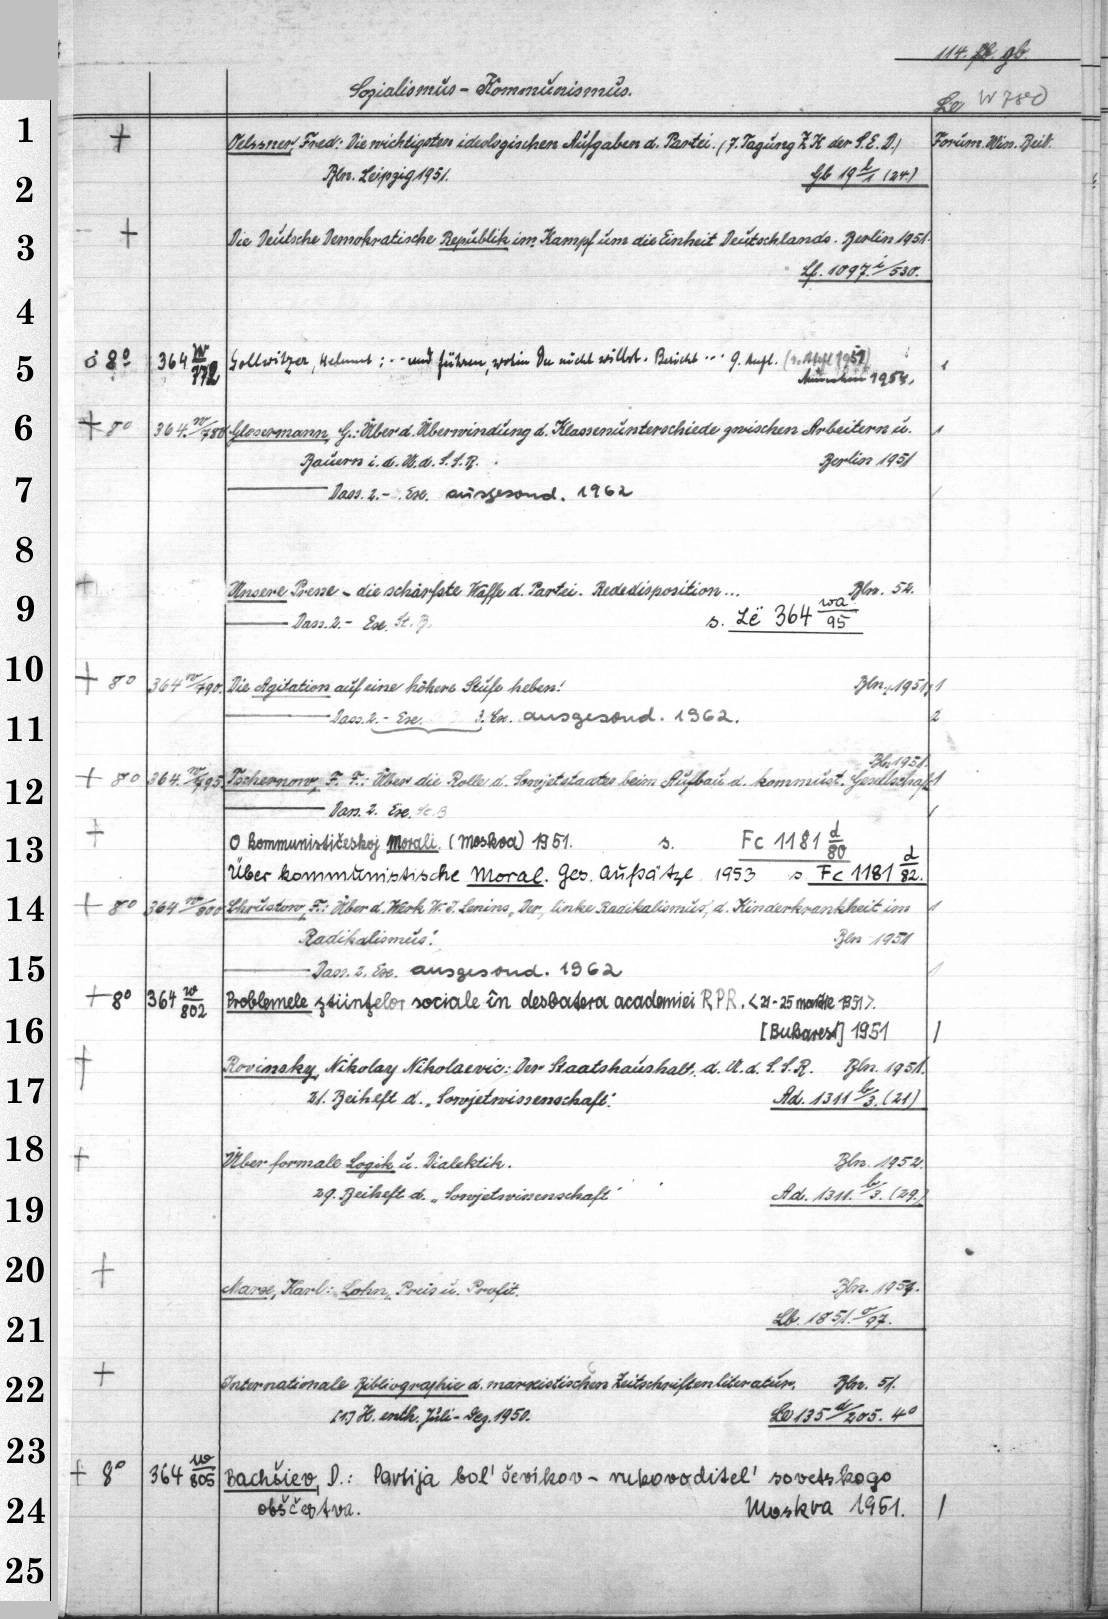 114. gb.
Sozialismus - Kommunismus.
Le W 780
+ Oelssner, Fred: Die wichtigsten ideologischen Aufgaben d. Partei. (7. Tagung Z K der S. E. D.) Forum. Wiss. Beil.
Bln. Leipzig 1951. Gb 19 b/1 (24.)
+ Die Deutsche Demokratische Republik im Kampf um die Einheit Deutschlands. Berlin 1951.
Lf. 1097. i/530.
8° 364 w/772 Gollwitzer, Helmut: ... und führen, wohin Du nicht willst. Bericht ... 9. Aufl. 1
München 1954.
+ 8° 364. w/780 Glesermann, G.: Über d. Überwindung d. Klassenunterschiede zwischen Arbeitern u. 1
Bauern i. d. U. d. S. S. R. Berlin 1951
Dass. 2. - Ex. ausgesond. 1962
+ Unsere Presse - die schärfste Waffe d. Partei. Rededisposition... Bln. 52.
Dass. 2. - Ex. St. B. s. Lë 364 wa/95
+ 8° 364 w/790. Die Agitation auf eine höhere Stufe heben! Bln. 1951 1
Dass. 2. - Ex. 3. Ex. ausgesond. 1962. 2
Bln 1951.
+ 8° 364. w/795. Tschernow, F. F.: Über die Rolle d. Sowjetstaates beim Aufbau d. kommust. Gesellschaft 1
Dass. 2. Ex. St. B 1
+ O kommunističeskoj Morali. (Moskva) 1951. s. Fc 1181 d/80
Über kommunistische Moral. Ges. Aufsätze 1953 s. Fc 1181 d/82.
+ 8° 364 w/800 Chrustow, F.: Über d. Werk W. I. Lenins „Der „linke Radikalismus", d. Kinderkrankheit im 1
Radikalismus". Bln 1951
Dass. 2. Ex. ausgesond. 1962
+ 8° 364 w/802 Problemele ştiinţelor sociale în desbatera academiei RPR. <21-25 martie 1951>.
[Bukarest] 1951 1
+ Rovinsky, Nikolay Nikolaevic: Der Staatshaushalt. d. U. d. S. S. R. Bln. 1951.
21. Beiheft d. „Sowjetwissenschaft". Ad. 1311 b/3. (21)
+ Über formale Logik u. Dialektik. Bln. 1952.
29. Beiheft d. „Sowjetwissenschaft" Ad. 1311. b/3. (29.)
+
Marx, Karl: Lohn, Preis u. Profit. Bln. 195
Lb. 1851. a/97.
+ Internationale Bibliographie d. marxistischen Zeitschriftenliteratur. Bln. 51.
[1] H. enth. Juli - Dez. 1950. Le 135 d/205. 4°
+ 8° 364 w/805 Bachšiev, D.: Partija bol'ševikov - rukovoditel' sovetskogo
obščestva. Moskva 1951. 1
1
2
3
4
5
6
7
8
9
10
11
12
13
14
15
16
17
18
19
20
21
22
23
24
25